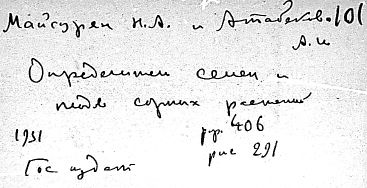 Майсурян Н.А. и Атабекова 101
А.И
Определители семян и
плодов сорных растений
1931 стр. 406
Гос издат рис 291